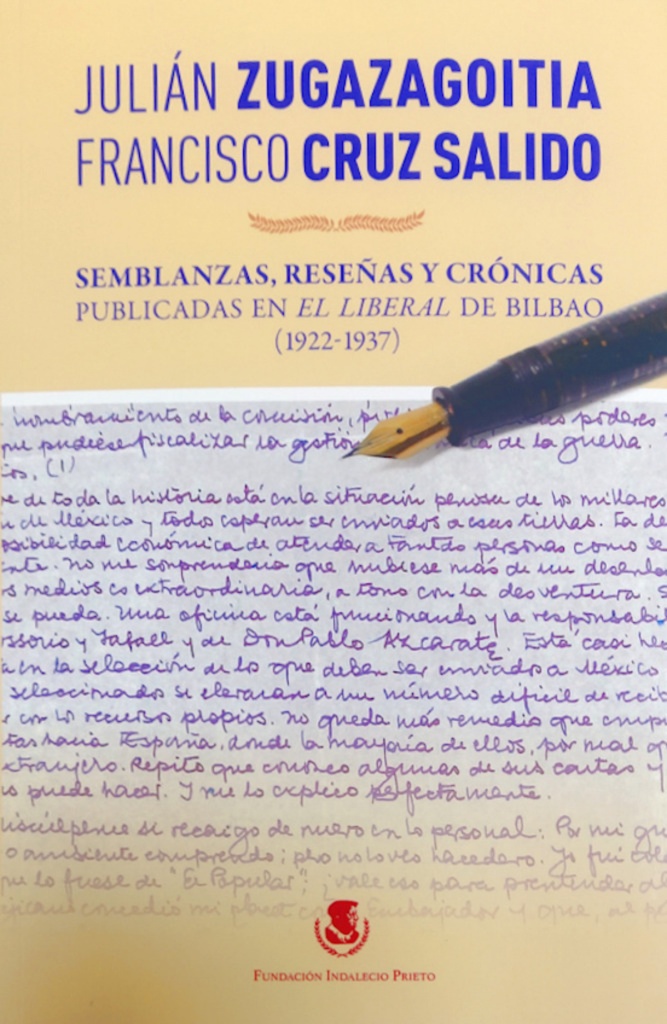 JULIÁN ZUGAZAGOITIA
FRANCISCO CRUZ SALIDO
SEMBLANZAS, RESEÑAS Y CRÓNICAS
PUBLICADAS EN EL LIBERAL DE BILBAO
(1922-1937)
nombramiento de la comisión, poderes
que pudiese fiscalizar la gestión de la guerra.
os. (1)
e de toda la historia está en la situación penosa de los millares
de México y todos esperan ser enviados a esas tierras. La
osibilidad económica de atender a tantas personas como se
nte. No me sorprendería que hubiese más de un
s medios es extraordinaria, a tono con la desventura. S
se pueda. Una oficina está funcionando y la responsabi
ssorio y Tafaell y de Don Pablo Azcarate. Está casi hec
a en la selección de los que deben ser enviados a México
seleccionado se elevarán a un número difícil de reci
con los recursos propios. No queda más remedio que
tas hacia España, donde la mayoría de ellos, por mal q
xtranjero. Repito que conozco algunas de sus cartas y
o puede hacer. Y me lo explico perfectamente.
iscúlpense si recaigo de nuevo en lo personal: Por mi
o ambiente comprendo; pero no lo veo hacedero. Yo fui
que lo fuese de "El Popular": ¿vale eso para pretender
ejicano concedió mi placet Embajador y que, al
FUNDACIÓN INDALECIO PRIETO